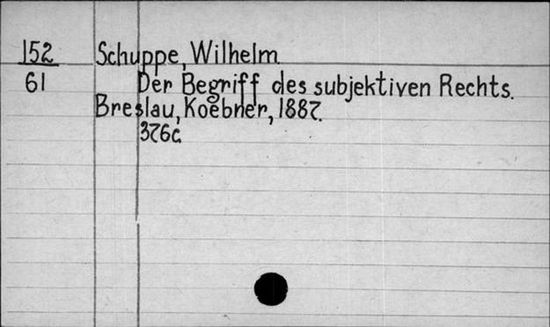 152 Schuppe, Wilhelm
61 Der Begriff des subjektiven Rechts.
Breslau, Koebner, 1887.
376c.